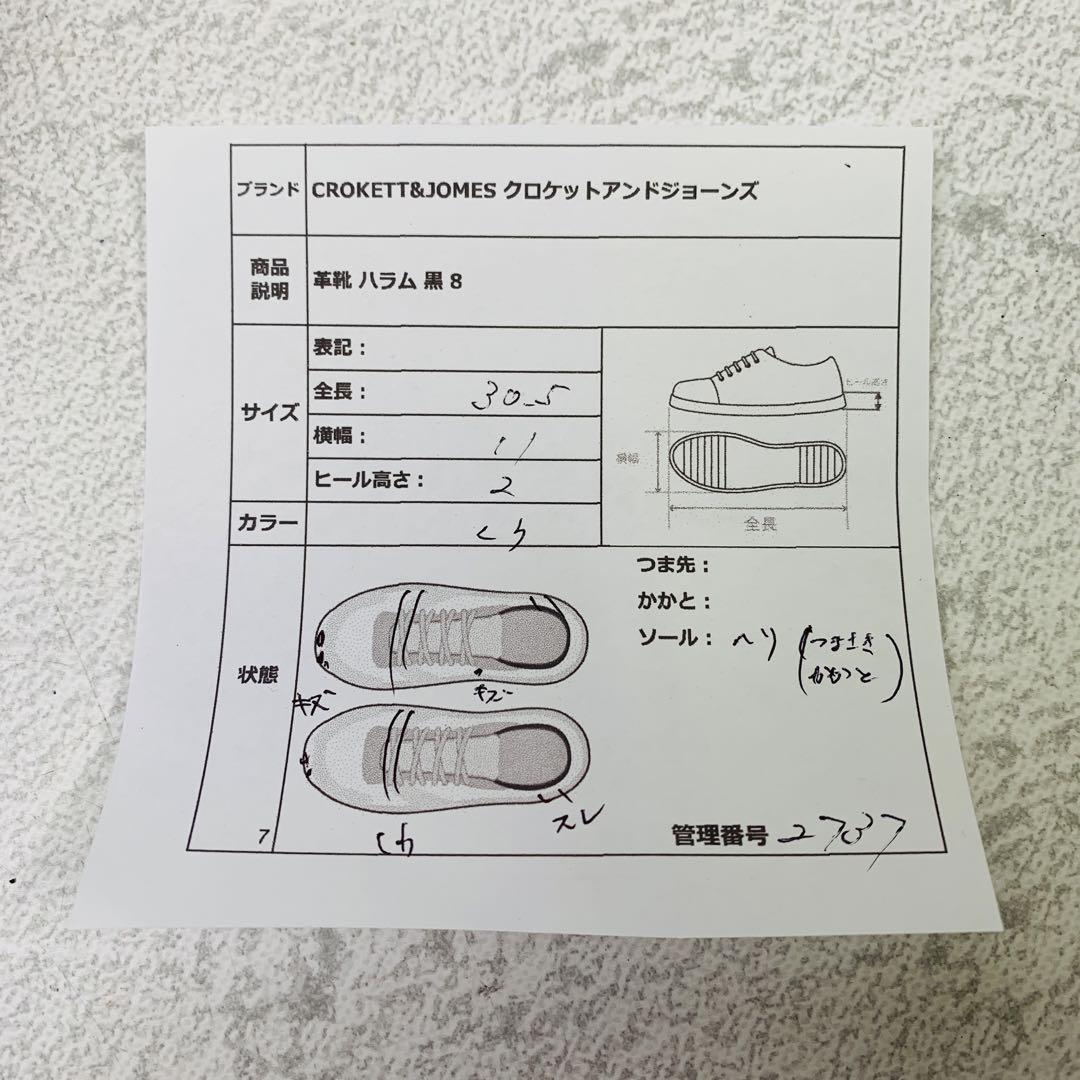 ブランド CROKETT&JOMES クロケットアンドジョーンズ
商品
説明
革靴 ハラム 黒 8
サイズ
表記：
全長： 30.5
横幅： 11
ヒール高さ： 2
ヒール高さ
横幅
全長
カラー くろ
状態
つま先：
かかと：
ソール： ヘリ (つまさき
かかと)
キズ
キズ
スレ
7
管理番号 2737